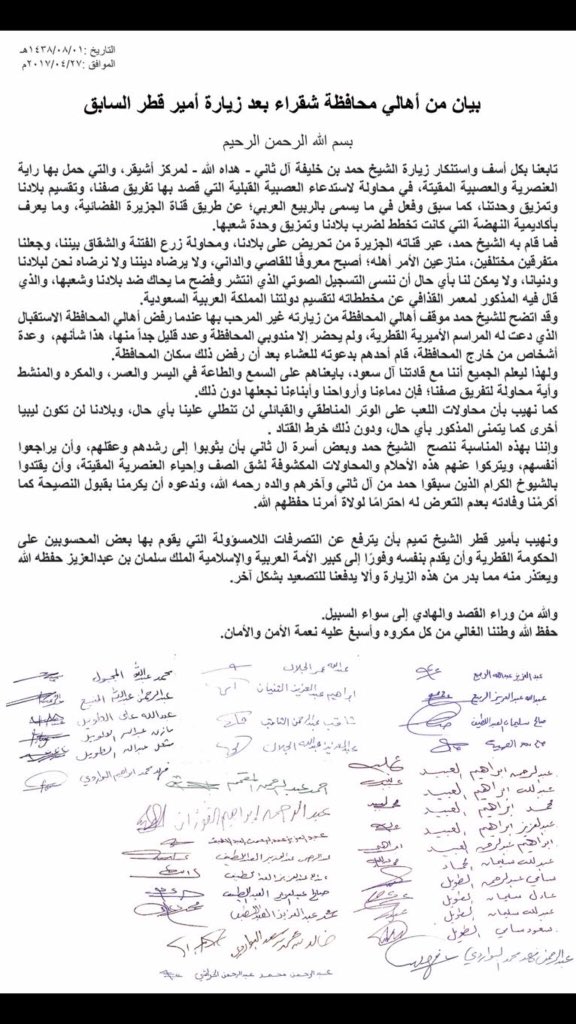 التاريخ :١٤٣٨/٠٨/٠١هـ
الموافق :٢٠١٧/٠٤/٢٧م
بيان من أهالي محافظة شقراء بعد زيارة أمير قطر السابق
بسم الله الرحمن الرحيم
تابعنا بكل أسف واستنكار زيارة الشيخ حمد بن خليفة آل ثاني - هداه الله - لمركز أشيقر، والتي حمل بها راية
العنصرية والعصبية المقيتة، في محاولة لاستدعاء العصبية القبلية التي قصد بها تفريق صفنا، وتقسيم بلادنا
وتمزيق وحدتنا، كما سبق وفعل في ما يسمى بالربيع العربي؛ عن طريق قناة الجزيرة الفضائية، وما يعرف
بأكاديمية النهضة التي كانت تخطط لضرب بلادنا وتمزيق وحدة شعبها.
فما قام به الشيخ حمد، عبر قناته الجزيرة من تحريض على بلادنا، ومحاولة زرع الفتنة والشقاق بيننا، وجعلنا
متفرقين مختلفين، منازعين الأمر أهله؛ أصبح معروفًا للقاصي والداني، ولا يرضاه ديننا ولا نرضاه نحن لبلادنا
ودنيانا، ولا يمكن لنا بأي حال أن ننسى التسجيل الصوتي الذي انتشر وفضح ما يحاك ضد بلادنا وشعبها، والذي
قال فيه المذكور لمعمر القذافي عن مخططاته لتقسيم دولتنا المملكة العربية السعودية.
وقد اتضح للشيخ حمد موقف أهالي المحافظة من زيارته غير المرحب بها عندما رفض أهالي المحافظة الاستقبال
الذي دعت له المراسم الأميرية القطرية، ولم يحضر إلا مندوبي المحافظة وعدد قليل جداً منها، هذا شأنهم، وعدة
أشخاص من خارج المحافظة، قام أحدهم بدعوته للعشاء بعد أن رفض ذلك سكان المحافظة.
ولهذا ليعلم الجميع أننا مع قادتنا آل سعود، بايعناهم على السمع والطاعة في اليسر والعسر، والمكره والمنشط
وأية محاولة لتفريق صفنا؛ فإن دماءنا وأرواحنا وأبناءنا نجعلها دون ذلك.
كما نهيب بأن محاولات اللعب على الوتر المناطقي والقبائلي لن تنطلي علينا بأي حال، وبلادنا لن تكون ليبيا
أخرى كما يتمنى المذكور بأي حال، ودون ذلك خرط القتاد .
وإننا بهذه المناسبة ننصح الشيخ حمد وبعض أسرة ال ثاني بأن يثوبوا إلى رشدهم وعقلهم، وأن يراجعوا
أنفسهم، ويتركوا عنهم هذه الأحلام والمحاولات المكشوفة لشق الصف وإحياء العنصرية المقيتة، وأن يقتدوا
بالشيوخ الكرام الذين سبقوا حمد من آل ثاني وآخرهم والده رحمه الله، وندعوه أن يكرمنا بقبول النصيحة كما
أكرمْنا وفادته بعدم التعرض له احترامًا لولاة أمرنا حفظهم الله.
ونهيب بأمير قطر الشيخ تميم بأن يترفع عن التصرفات اللامسؤولة التي يقوم بها بعض المحسوبين على
الحكومة القطرية وأن يقدم بنفسه وفورًا إلى كبير الأمة العربية والإسلامية الملك سلمان بن عبدالعزيز حفظه الله
ويعتذر منه مما بدر من هذه الزيارة وألا يدفعنا للتصعيد بشكل آخر.
والله من وراء القصد والهادي إلى سواء السبيل.
حفظ الله وطننا الغالي من كل مكروه وأسبغ عليه نعمة الأمن والأمان.
عبدالعزيز عبدالله الربيع
عبدالله عبدالعزيز الربيع
صالح سليمان عبداللطيف
عبدالرحمن ابراهيم العبيد
عبدالله ابراهيم العبيد
محمد ابراهيم العبيد
عبدالعزيز ابراهيم العبيد
ابراهيم عبدالرحمن العبيد
عبدالله سليمان
سامي عبدالرحمن الطويل
عادل سليمان الطويل
عبدالله سليمان الطويل
سعود سامي الطويل
عبدالرحمن فهد محمد البواردي
عبدالله عمر الجلال
ابراهيم عبدالعزيز الثنيان
احمد عبدالرحمن
عبدالرحمن ابراهيم الفوزان
عبدالرحمن عبدالعزيز العبداللطيف
صالح عبدالعزيز العبداللطيف
محمد عبدالعزيز العبداللطيف
خالد محمد سعد البواردي
عبدالرحمن محمد عبدالرحمن
محمد عبدالله
عبدالرحمن عبدالله
عبدالله علي الطويل
مازن عبدالله الطويل
مشعل عبدالله الطويل
فهد محمد ابراهيم البواردي